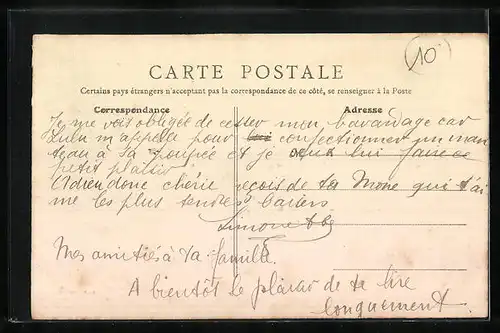 10
CARTE POSTALE
Certains pays étrangers n'acceptant pas la correspondance de ce côté, se renseigner à la Poste
Correspondance
Adresse
Je me vois obligée de cesser mon bavardage car
Lulu m'appelle pour confectionner un man
teau à sa poupée et je veux lui faire ce
petit plaisir
Adieu donc chérie reçois de ta Mone qui t'ai
me les plus tendres baisers
Simone
Mes amitiés à ta famille.
A bientôt le plaisir de te lire
longuement.